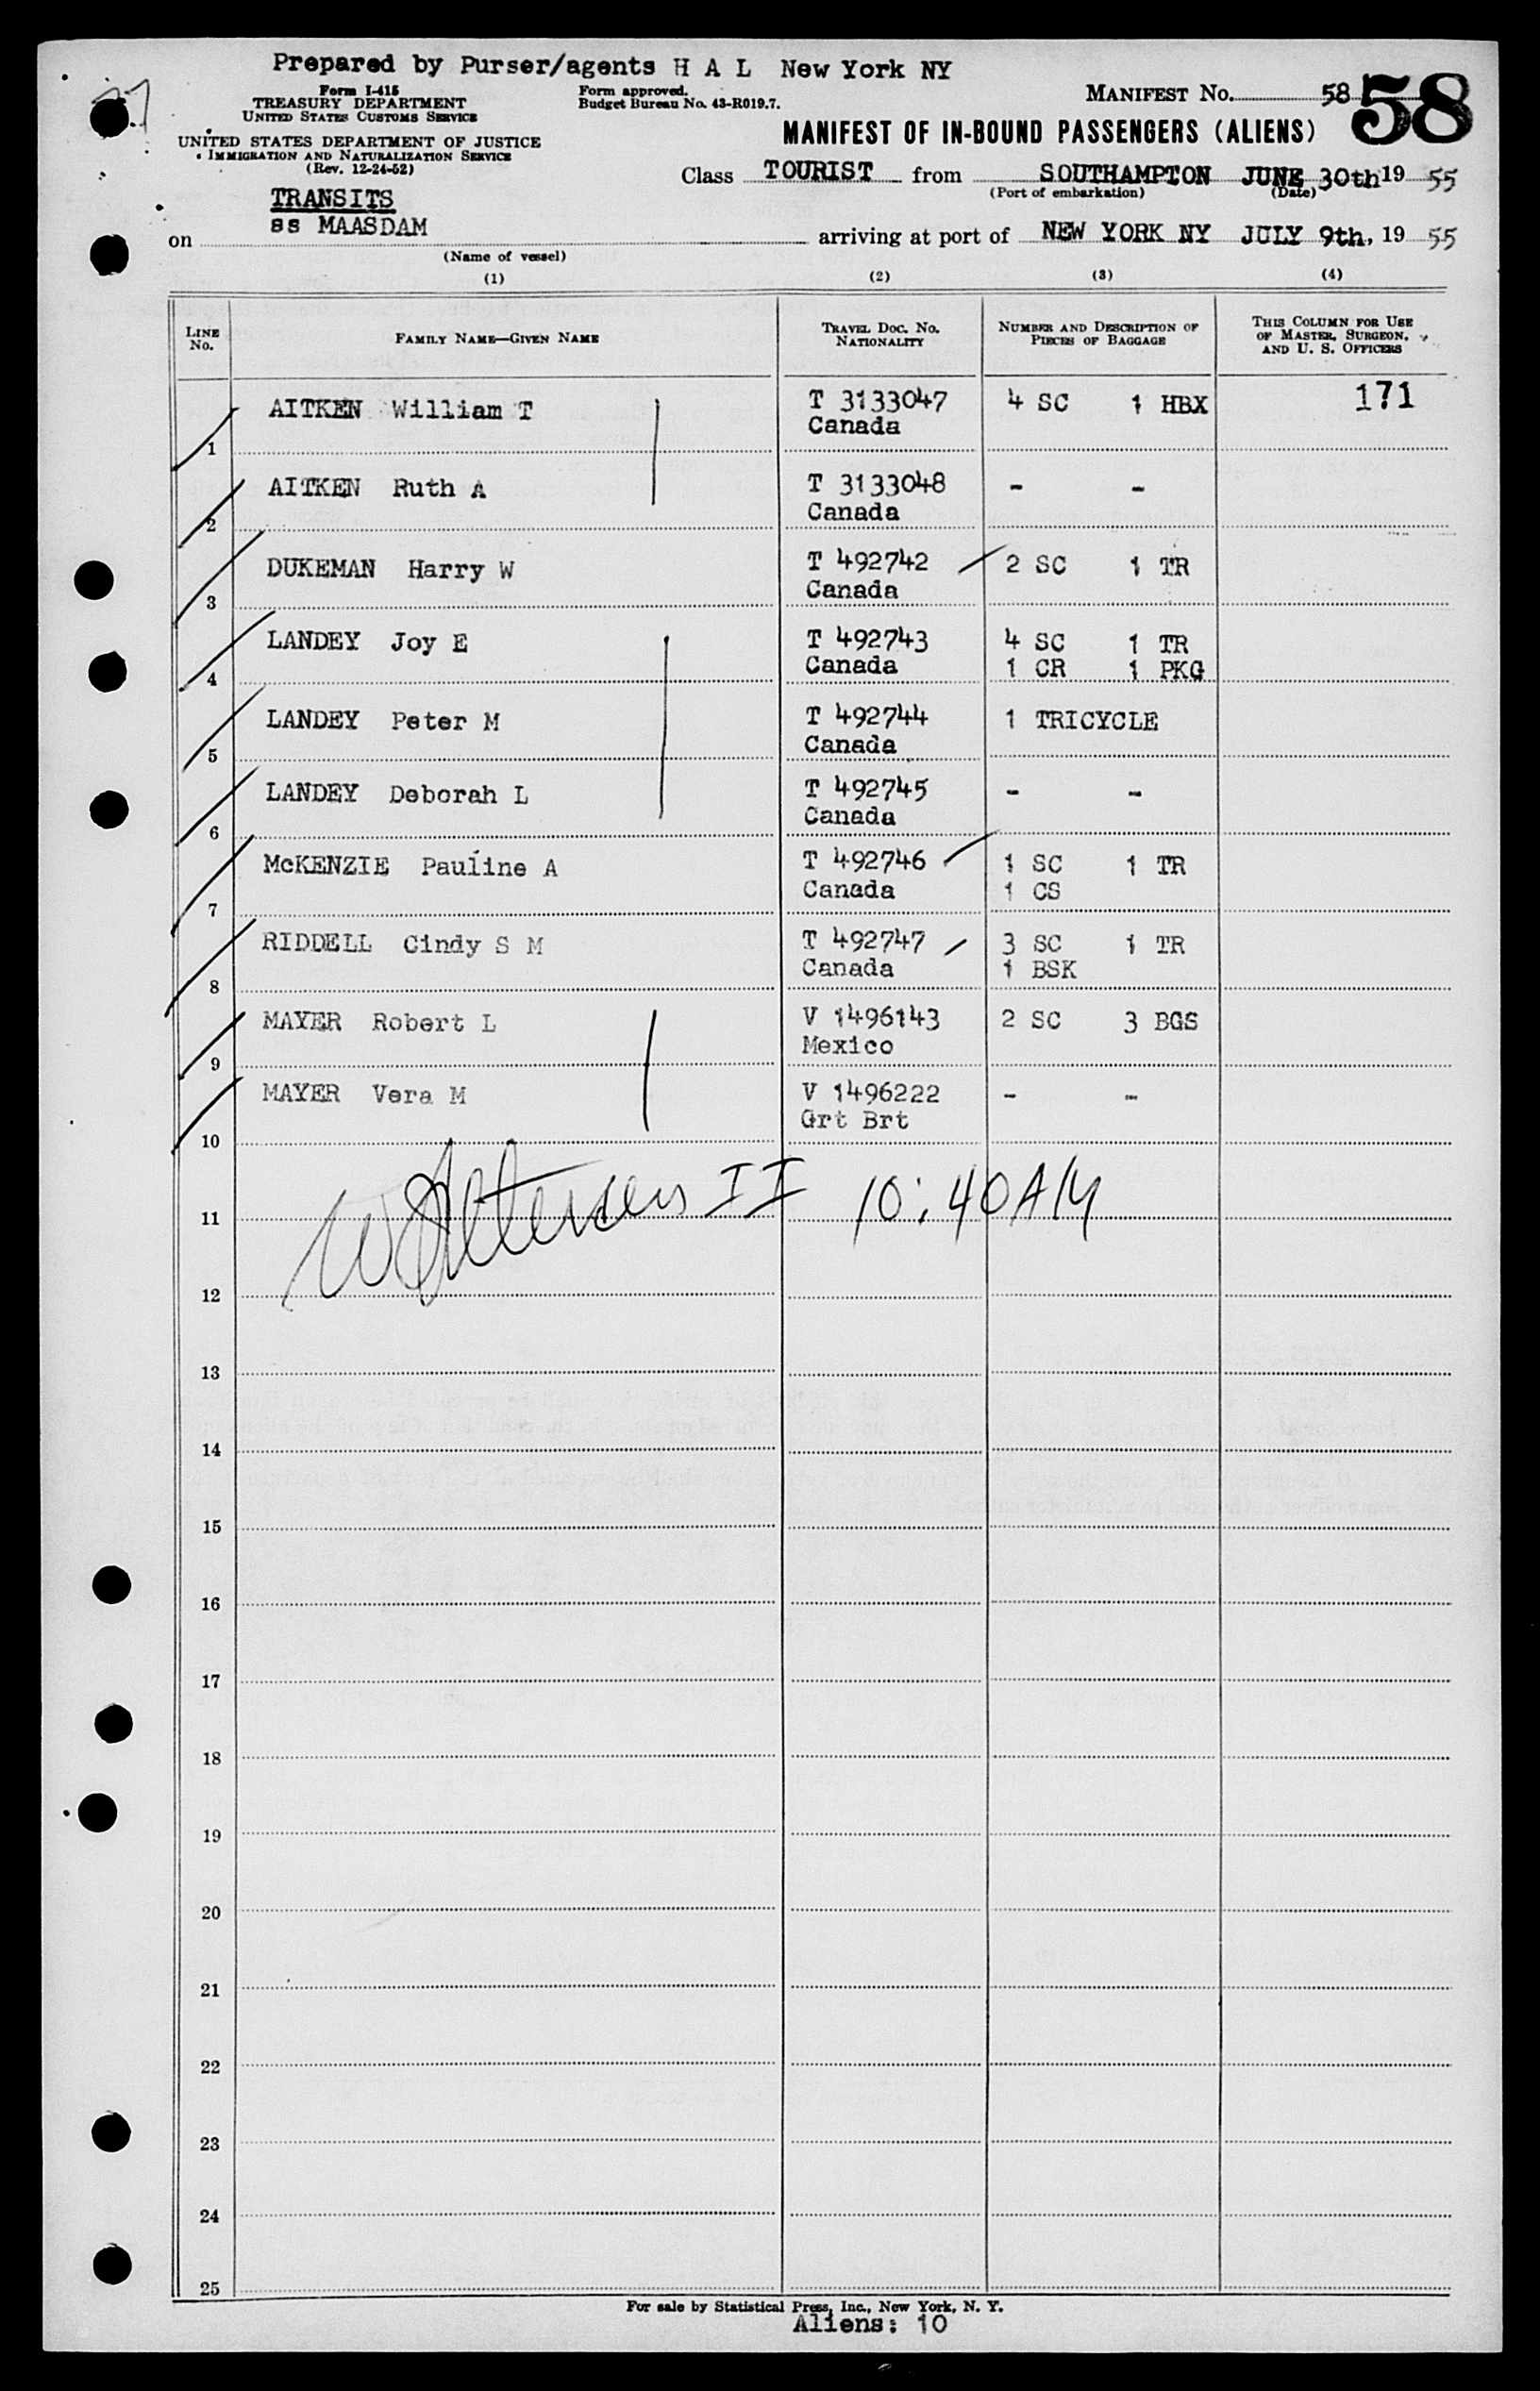 Prepared by Purser/agents H A L New York NY
Form I-415
TREASURY DEPARTMENT
UNITED STATES CUSTOMS SERVICE
UNITED STATES DEPARTMENT OF JUSTICE
IMMIGRATION AND NATURALIZATION SERVICE
(Rev. 12-24-52)
Form approved.
Budget Bureau No. 43-R019.7.
MANIFEST NO. 58 58
MANIFEST OF IN-BOUND PASSENGERS (ALIENS)
Class TOURIST from SOUTHAMPTON JUNE 30th 19 55
(Port of embarkation) (Date)
TRANSITS
on ss MAASDAM arriving at port of NEW YORK NY JULY 9th, 19 55
(Name of vessel)
(1) (2) (3) (4)
LINE NO. FAMILY NAME—GIVEN NAME TRAVEL DOC. NO. NATIONALITY NUMBER AND DESCRIPTION OF PIECES OF BAGGAGE THIS COLUMN FOR USE OF MASTER, SURGEON, AND U. S. OFFICERS
AITKEN William T T 3133047 4 SC 1 HBX 171
1 Canada
AITKEN Ruth A T 3133048 - -
2 Canada
DUKEMAN Harry W T 492742 2 SC 1 TR
3 Canada
LANDEY Joy E T 492743 4 SC 1 TR
4 Canada 1 CR 1 PKG
LANDEY Peter M T 492744 1 TRICYCLE
5 Canada
LANDEY Deborah L T 492745 - -
6 Canada
McKENZIE Pauline A T 492746 1 SC 1 TR
7 Canada 1 CS
RIDDELL Cindy S M T 492747 3 SC 1 TR
8 Canada 1 BSK
MAYER Robert L V 1496143 2 SC 3 BGS
9 Mexico
MAYER Vera M V 1496222 - -
10 Grt Brt
11 II 10:40 AM
12
13
14
15
16
17
18
19
20
21
22
23
24
25
For sale by Statistical Press, Inc., New York, N. Y.
Aliens: 10